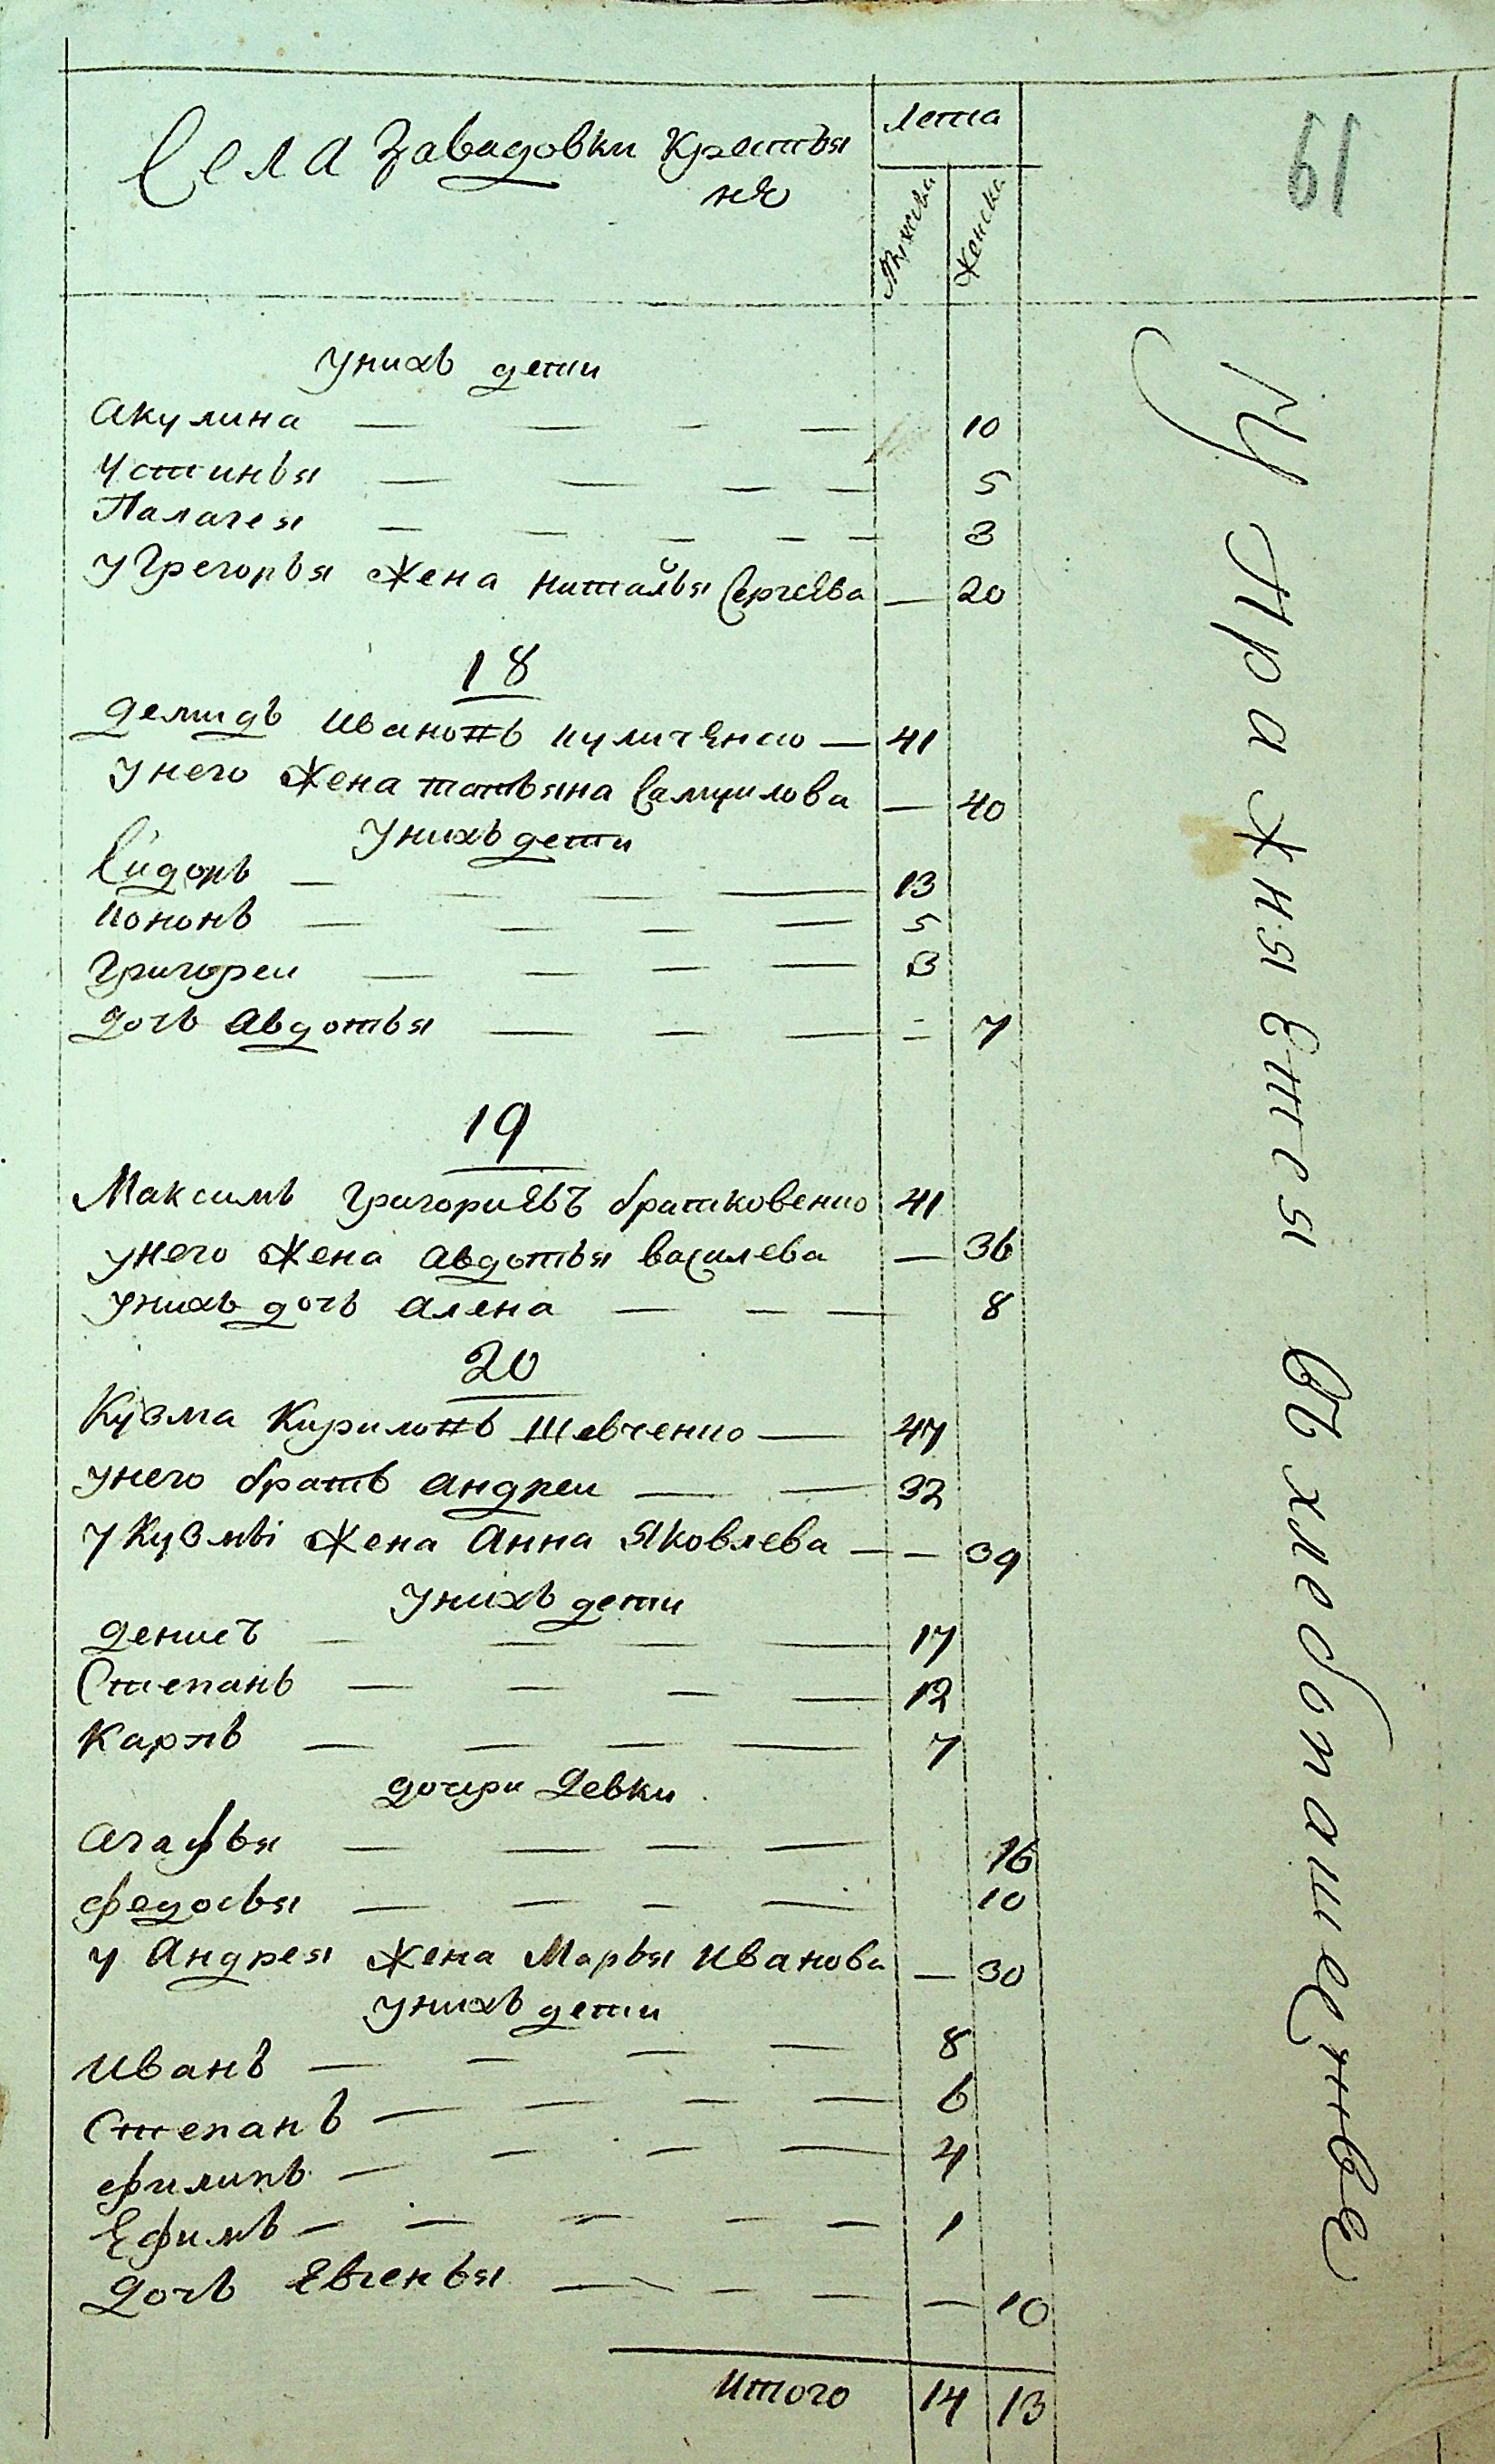 Села Завадовки Крестья
не
Лета
Мужска
Женска
61
У них дети
Акулина — — — — 10
Устинья — — — — 5
Палагея — — — — — 3
У Грегорья жена Наталья Сергѣва — 20
18
Демидъ Ивановъ Куличенко — 41
У него жена Татьяна Самуилова — 40
У нихъ дети
Сидоръ — — — — 13
Кононъ — — — — 5
Григореи — — — — 3
Дочь Авдотья — — — = 7
19
Максимъ Григориевъ Братковенко 41
У него жена Авдотья Василева — 36
У нихъ дочь Алена — — — 8
20
Кузма Кириловъ Шевченко — 47
У него братъ Андреи — — 32
У Кузмы жена Анна Яковлева — — 39
У нихъ дети
Денисъ — — — — 17
Степанъ — — — — 12
Карпъ — — — — 7
Дочери девки
Агафья — — — — 16
Федосья — — — — 10
У Андрея жена Марья Иванова — 30
У нихъ дети
Иванъ — — — — 8
Степанъ — — — — 6
Филипъ — — — — 4
Ефимъ — — — — — 1
Дочь Евгенья — — — — 10
Итого 14 13
Упражняется въ хлебопашестве